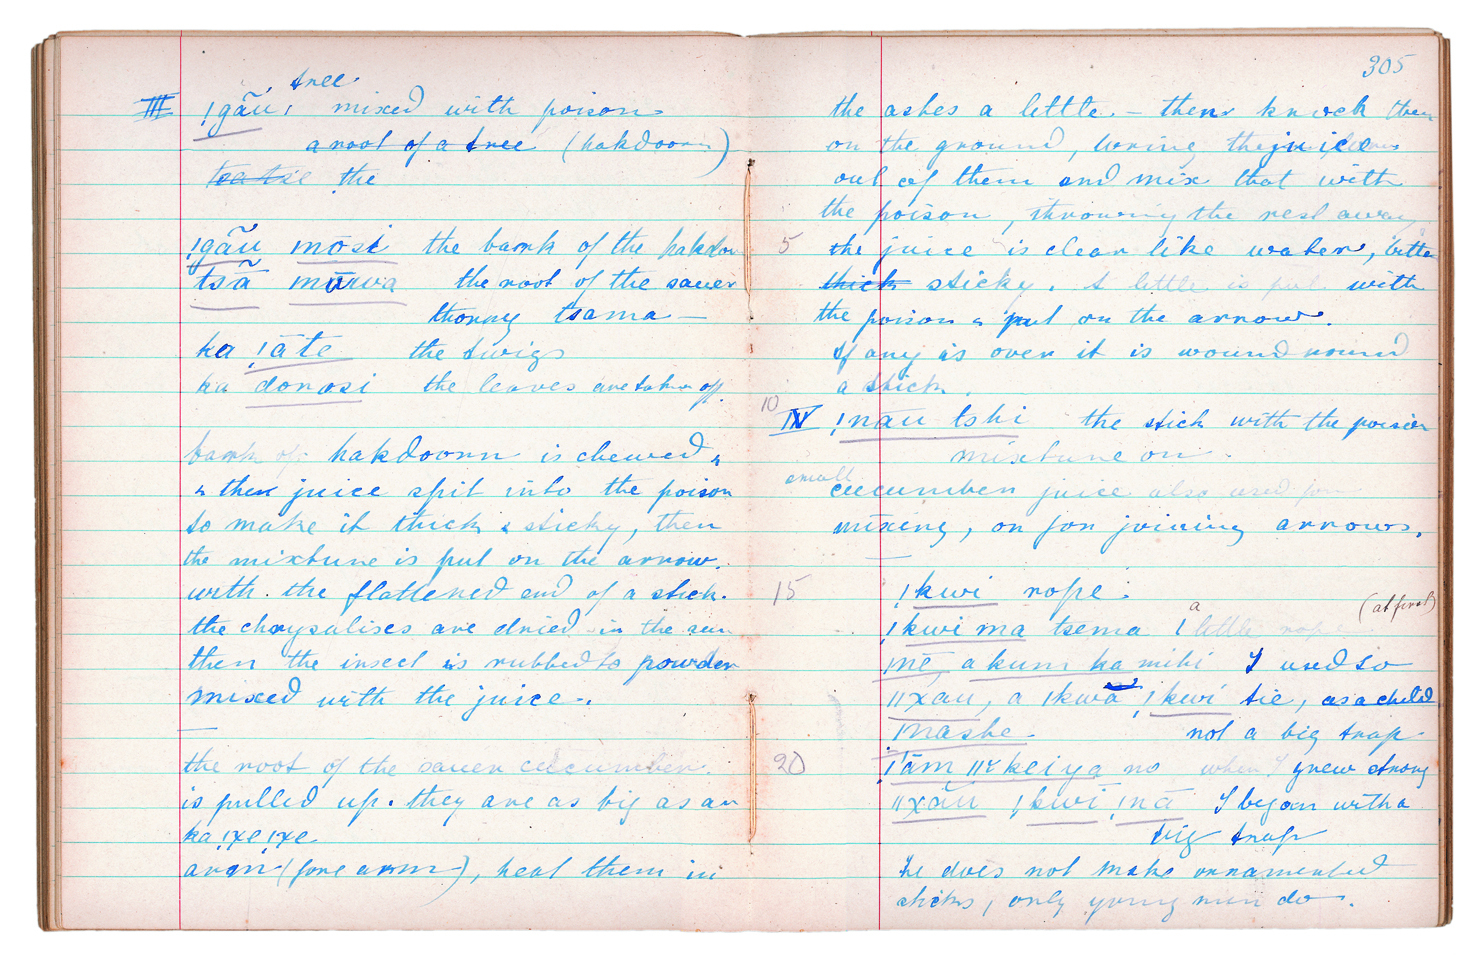 tree
III !gãũ, mixed with poison
a root of a tree (hakdoorn)
the
!gãũ mōsi the bark of the hakdoorn
tsã mūrwa the root of the sauer
thorny tsama —
ka !āte the twigs
ka donasi the leaves are taken off.
bark of hakdoorn is chewed &
& then juice spit into the poison
to make it thick & sticky, then
the mixture is put on the arrow.
with the flattened end of a stick.
the chrysalises are dried in the sun
then the insect is rubbed to powder
mixed with the juice.
—
the root of the sauer cucumber.
is pulled up. they are as big as an
ka !xe !xe
arm (fore arm), heat them in
305
the ashes a little. — then knock them
on the ground, wring the juice
out of them and mix that with
the poison, throwing the rest away
5 the juice is clear like water, bitter
thick sticky. A little is put with
the poison & put on the arrow.
If any is over it is wound round
a stick.
10
IV !nāu tshi the stick with the poison
mixture on.
small
cucumber juice also used for
mixing, or for joining arrows.
—
15 !kwi rope.
a (at first)
!kwi ma tsema little rope
a kum ka mihi I used to
ǁxau, a !kwa !kwi tie, as a child
mashe. not a big trap
20 !ām keiya no when I grew strong
ǁxāu !kwi !nā I began with a
big trap
He does not make ornamented
sticks, only young men do.